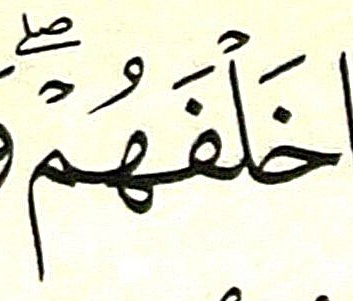 ا خَلْفَهُمْ ۖ